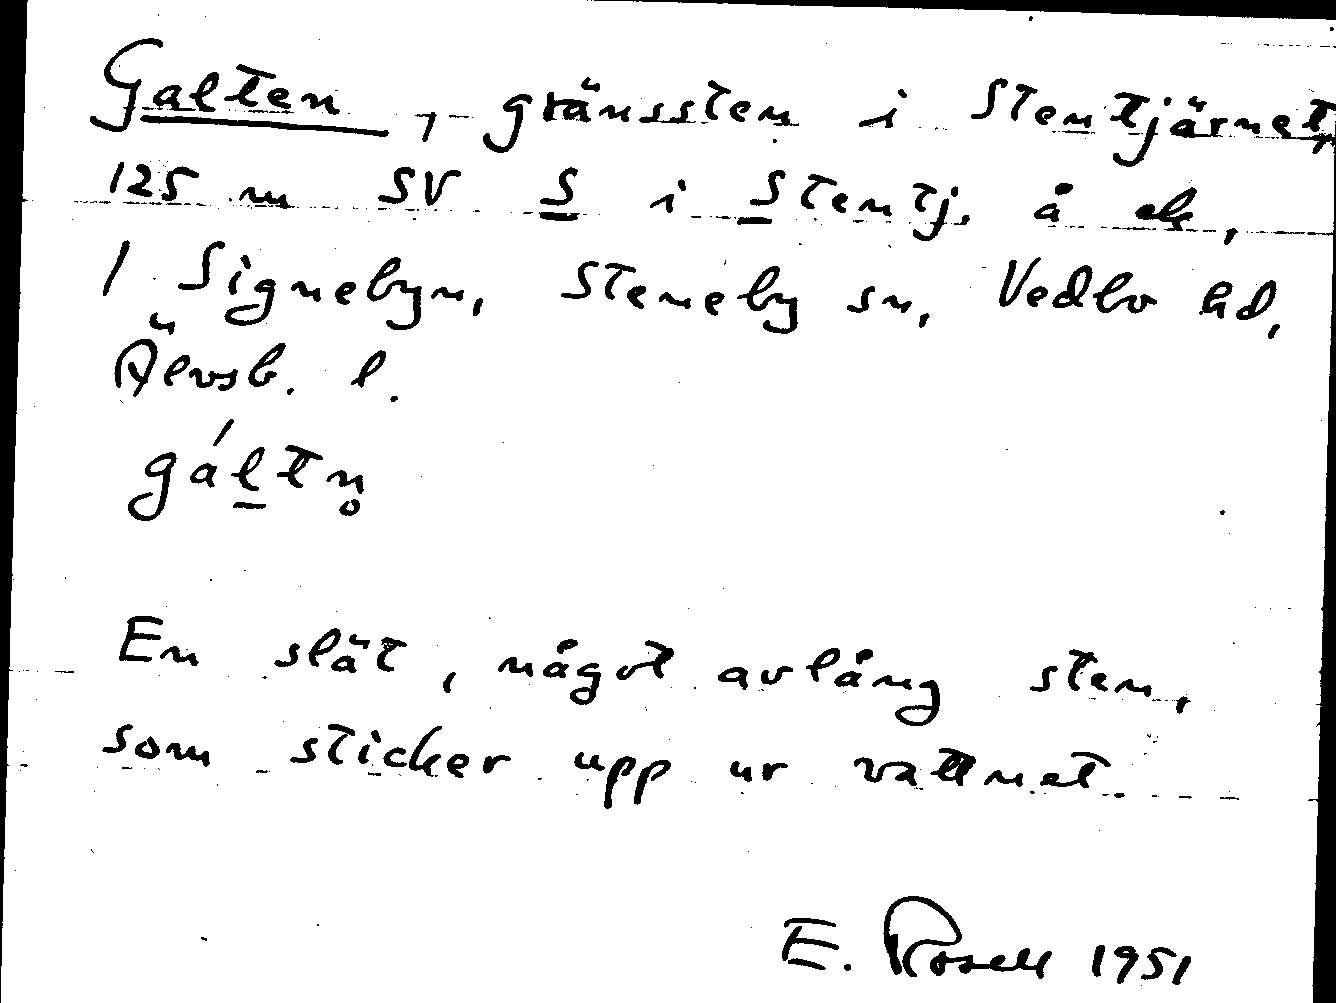 Galten, gränssten i Stentjärnet,
125 m SV S i Stentj. å ek,
1 Signebyn, Steneby sn, Vedbo hd,
Älvsb. l.
gáltn̥
En slät, något avlång sten,
som sticker upp ur vattnet.
E. Rosell 1951